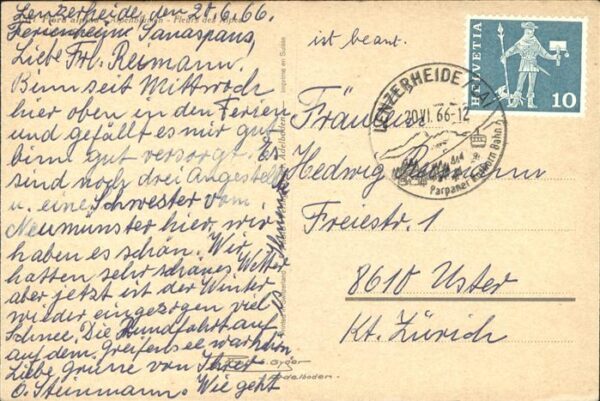 Lenzerheide, den 20.6.66.
Ferienheim Sanaspans,
Liebe Frl. Reimann.
Binn seit Mittwoch
hier oben in den Ferien
und gefällt es mir gut
binn gut versorgt. Es
sind noch drei Angestell
u. eine Schwester vom
Neumünster hier, wir
haben es schön. Wir
hatten sehr schönes Wetter
aber jetzt ist der Winter
wieder eingezogen viel
Schnee. Die Rundfahrt auf
auf dem Greifensee war schön
Liebe grüsse von Ihrer
O. Steinmann. Wie geht
ist beant.
HELVETIA
10
LENZERHEIDE
20.VI.66-12
Parpaner Rothorn Bahn
Fräulein
Hedwig Reimann
Freiestr. 1
8610 Uster
Kt. Zürich
Gyger
Adelboden
Imprimé en Suisse